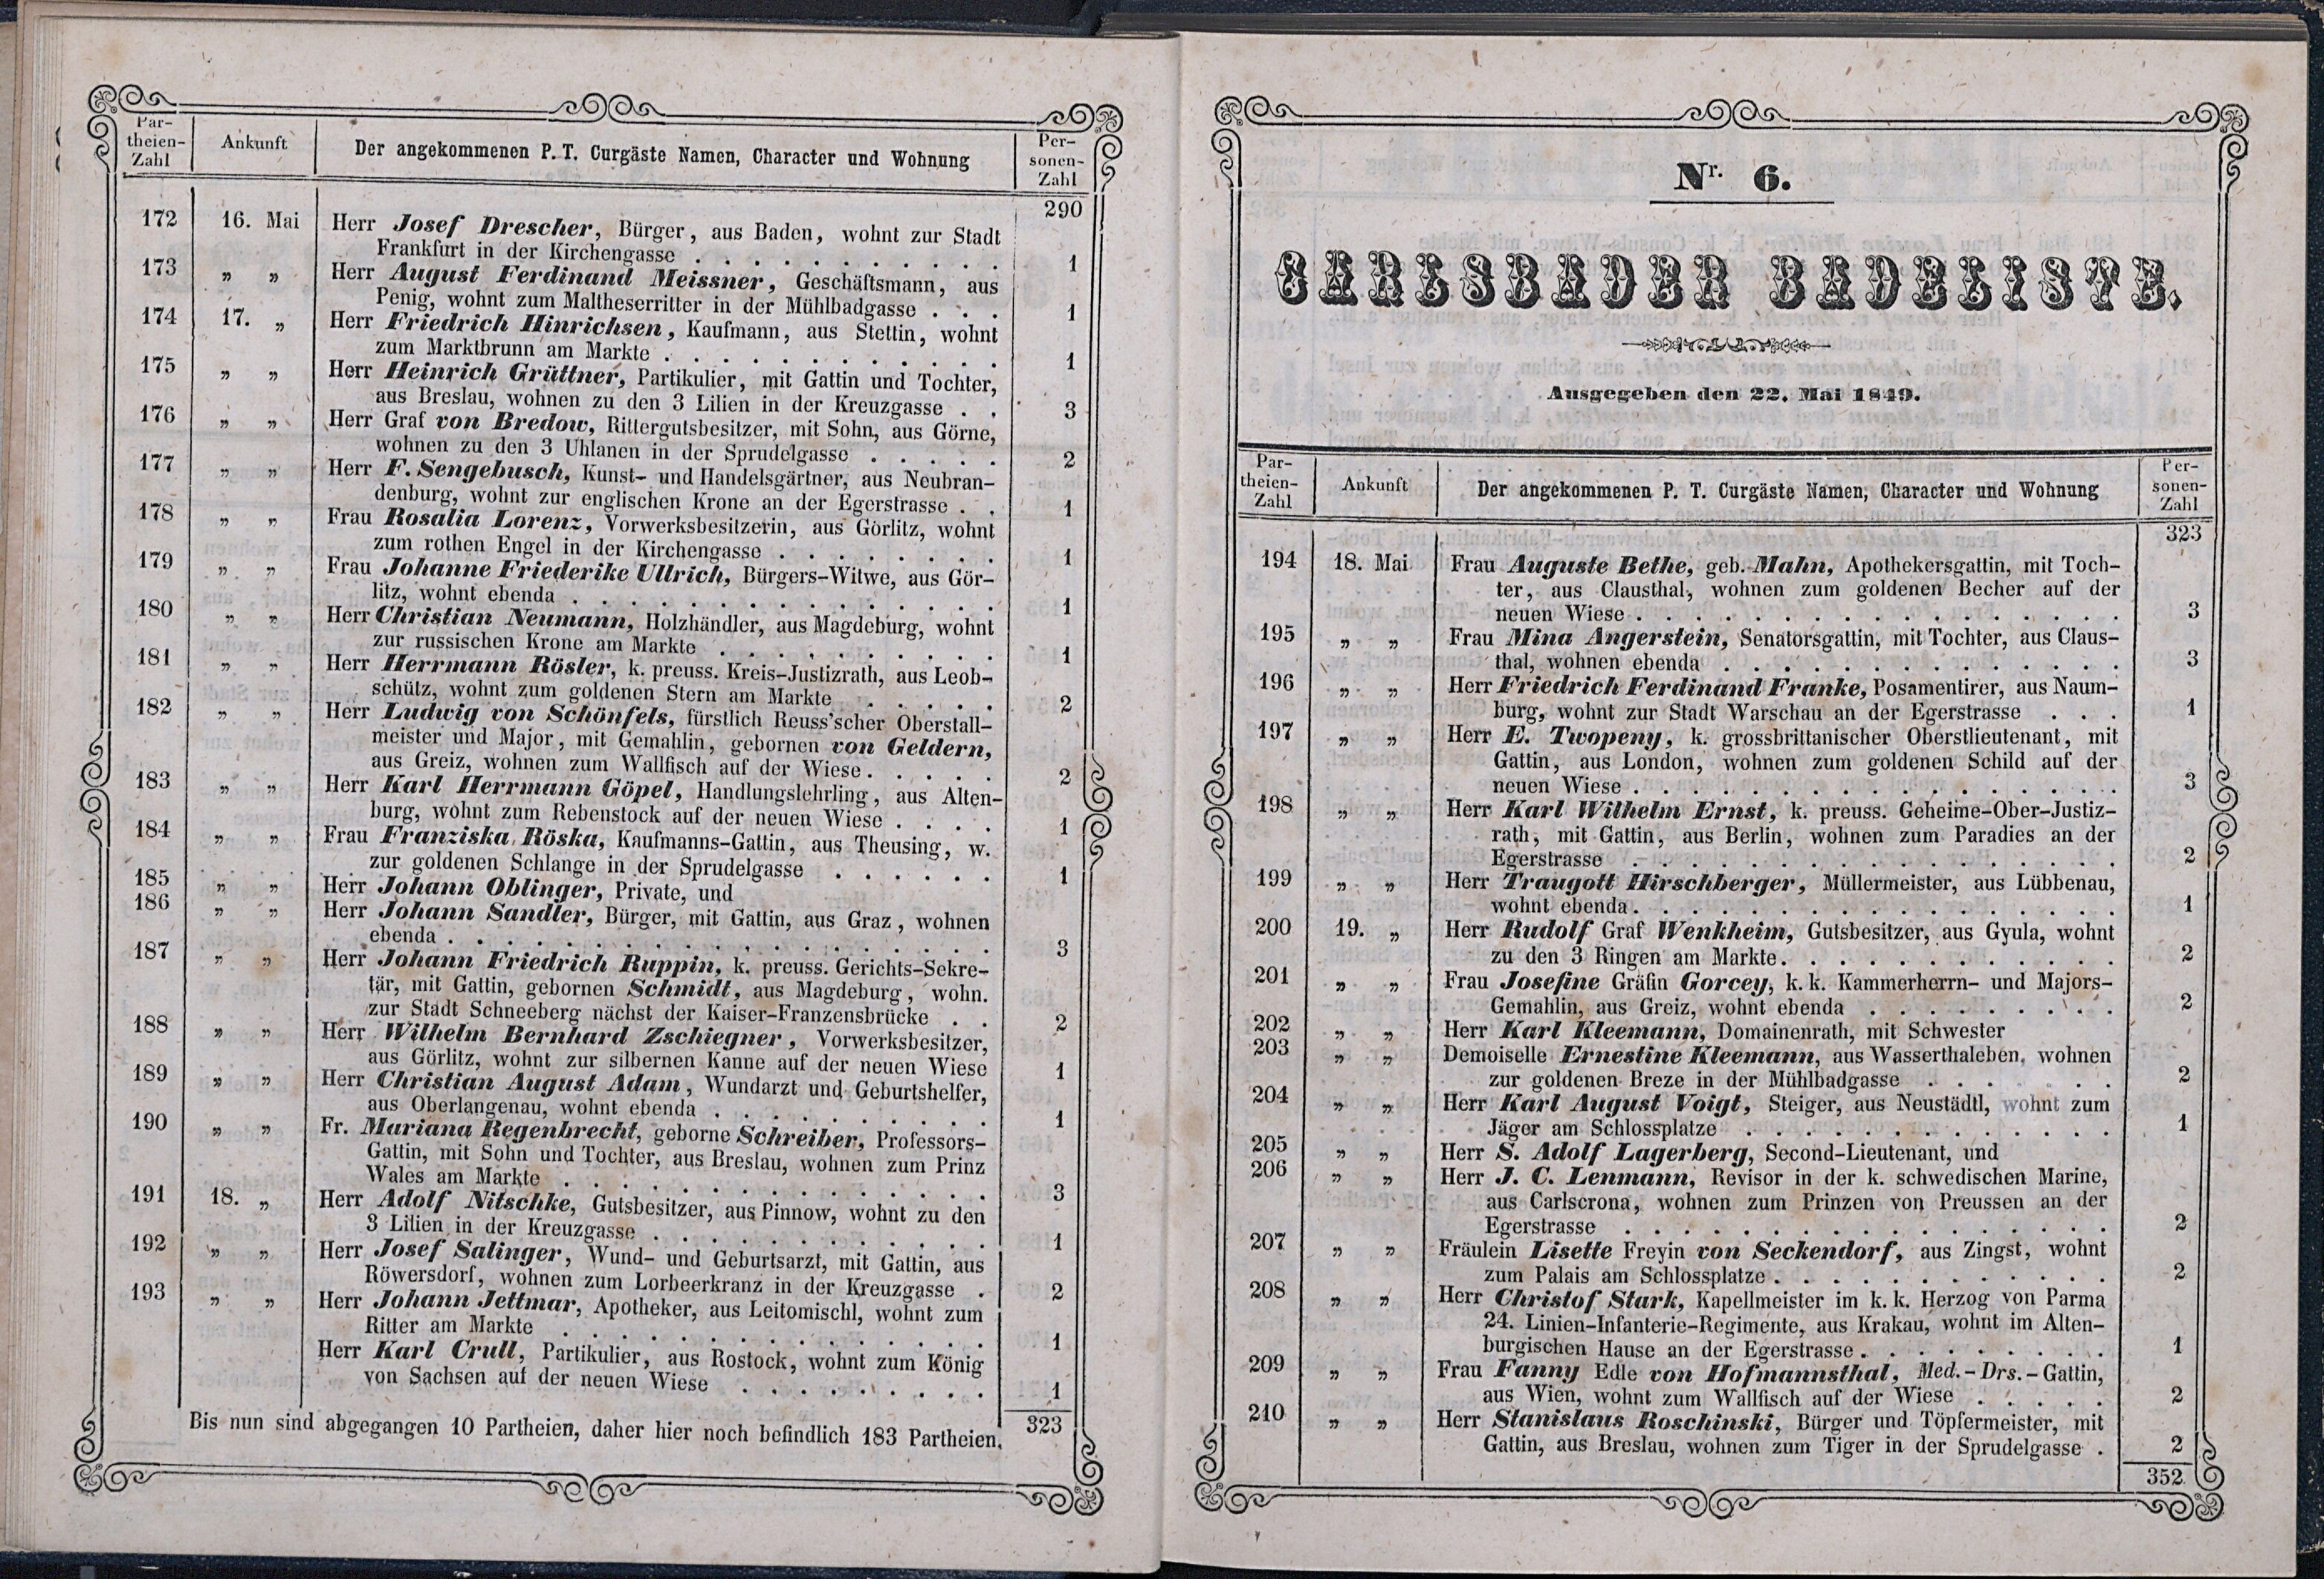 Par-
theien-
Zahl
Ankunft
Der angekommenen P. T. Curgäste Namen, Character und Wohnung
Per-
sonen-
Zahl
290
172 16. Mai Herr Josef Drescher, Bürger, aus Baden, wohnt zur Stadt
Frankfurt in der Kirchengasse . . . . . . . . . . . 1
173 „ „ Herr August Ferdinand Meissner, Geschäftsmann, aus
Penig, wohnt zum Maltheserritter in der Mühlbadgasse . . . 1
174 17. „ Herr Friedrich Hinrichsen, Kaufmann, aus Stettin, wohnt
zum Marktbrunn am Markte . . . . . . . . . . . . 1
175 „ „ Herr Heinrich Grüttner, Partikulier, mit Gattin und Tochter,
aus Breslau, wohnen zu den 3 Lilien in der Kreuzgasse . . 3
176 „ „ Herr Graf von Bredow, Rittergutsbesitzer, mit Sohn, aus Görne,
wohnen zu den 3 Uhlanen in der Sprudelgasse . . . . . 2
177 „ „ Herr F. Sengebusch, Kunst- und Handelsgärtner, aus Neubran-
denburg, wohnt zur englischen Krone an der Egerstrasse . . 1
178 „ „ Frau Rosalia Lorenz, Vorwerksbesitzerin, aus Görlitz, wohnt
zum rothen Engel in der Kirchengasse . . . . . . . . 1
179 „ „ Frau Johanne Friederike Ullrich, Bürgers-Witwe, aus Gör-
litz, wohnt ebenda . . . . . . . . . . . . . . . 1
180 „ „ Herr Christian Neumann, Holzhändler, aus Magdeburg, wohnt
zur russischen Krone am Markte . . . . . . . . . . 1
181 „ „ Herr Herrmann Rösler, k. preuss. Kreis-Justizrath, aus Leob-
schütz, wohnt zum goldenen Stern am Markte . . . . . . 2
182 „ „ Herr Ludwig von Schönfels, fürstlich Reuss'scher Oberstall-
meister und Major, mit Gemahlin, gebornen von Geldern,
aus Greiz, wohnen zum Wallfisch auf der Wiese . . . . . 2
183 „ „ Herr Karl Herrmann Göpel, Handlungslehrling, aus Alten-
burg, wohnt zum Rebenstock auf der neuen Wiese . . . . 1
184 „ „ Frau Franziska Röska, Kaufmanns-Gattin, aus Theusing, w.
zur goldenen Schlange in der Sprudelgasse . . . . . . 1
185 „ „ Herr Johann Oblinger, Private, und
186 „ „ Herr Johann Sandler, Bürger, mit Gattin, aus Graz, wohnen
ebenda . . . . . . . . . . . . . . . . . . . 3
187 „ „ Herr Johann Friedrich Ruppin, k. preuss. Gerichts-Sekre-
tär, mit Gattin, gebornen Schmidt, aus Magdeburg, wohn.
zur Stadt Schneeberg nächst der Kaiser-Franzensbrücke . . 2
188 „ „ Herr Wilhelm Bernhard Zschiegner, Vorwerksbesitzer,
aus Görlitz, wohnt zur silbernen Kanne auf der neuen Wiese 1
189 „ „ Herr Christian August Adam, Wundarzt und Geburtshelfer,
aus Oberlangenau, wohnt ebenda . . . . . . . . . . 1
190 „ „ Fr. Mariana Regenbrecht, geborne Schreiber, Professors-
Gattin, mit Sohn und Tochter, aus Breslau, wohnen zum Prinz
Wales am Markte . . . . . . . . . . . . . . . 3
191 18. „ Herr Adolf Nitschke, Gutsbesitzer, aus Pinnow, wohnt zu den
3 Lilien in der Kreuzgasse . . . . . . . . . . . . 1
192 „ „ Herr Josef Salinger, Wund- und Geburtsarzt, mit Gattin, aus
Röwersdorf, wohnen zum Lorbeerkranz in der Kreuzgasse . 2
193 „ „ Herr Johann Jettmar, Apotheker, aus Leitomischl, wohnt zum
Ritter am Markte . . . . . . . . . . . . . . . 1
Herr Karl Crull, Partikulier, aus Rostock, wohnt zum König
von Sachsen auf der neuen Wiese . . . . . . . . . 1
Bis nun sind abgegangen 10 Partheien, daher hier noch befindlich 183 Partheien. 323
Nr. 6.
CARLSBADER BADELISTE.
Ausgegeben den 22. Mai 1849.
Par-
theien-
Zahl
Ankunft
Der angekommenen P. T. Curgäste Namen, Character und Wohnung
Per-
sonen-
Zahl
323
194 18. Mai Frau Auguste Bethe, geb. Mahn, Apothekersgattin, mit Toch-
ter, aus Clausthal, wohnen zum goldenen Becher auf der
neuen Wiese . . . . . . . . . . . . . . . . . 3
195 „ „ Frau Mina Angerstein, Senatorsgattin, mit Tochter, aus Claus-
thal, wohnen ebenda . . . . . . . . . . . . . . 3
196 „ „ Herr Friedrich Ferdinand Franke, Posamentirer, aus Naum-
burg, wohnt zur Stadt Warschau an der Egerstrasse . . . 1
197 „ „ Herr E. Twopeny, k. grossbrittanischer Oberstlieutenant, mit
Gattin, aus London, wohnen zum goldenen Schild auf der
neuen Wiese . . . . . . . . . . . . . . . . . 3
198 „ „ Herr Karl Wilhelm Ernst, k. preuss. Geheime-Ober-Justiz-
rath, mit Gattin, aus Berlin, wohnen zum Paradies an der
Egerstrasse . . . . . . . . . . . . . . . . . 2
199 „ „ Herr Traugott Hirschberger, Müllermeister, aus Lübbenau,
wohnt ebenda . . . . . . . . . . . . . . . . . 1
200 19. „ Herr Rudolf Graf Wenkheim, Gutsbesitzer, aus Gyula, wohnt
zu den 3 Ringen am Markte . . . . . . . . . . . . 2
201 „ „ Frau Josefine Gräfin Gorcey, k. k. Kammerherrn- und Majors-
Gemahlin, aus Greiz, wohnt ebenda . . . . . . . . . 2
202 „ „ Herr Karl Kleemann, Domainenrath, mit Schwester
203 „ „ Demoiselle Ernestine Kleemann, aus Wasserthaleben, wohnen
zur goldenen Breze in der Mühlbadgasse . . . . . . . 2
204 „ „ Herr Karl August Voigt, Steiger, aus Neustädtl, wohnt zum
Jäger am Schlossplatze . . . . . . . . . . . . . 1
205 „ „ Herr S. Adolf Lagerberg, Second-Lieutenant, und
206 „ „ Herr J. C. Lenmann, Revisor in der k. schwedischen Marine,
aus Carlscrona, wohnen zum Prinzen von Preussen an der
Egerstrasse . . . . . . . . . . . . . . . . . 2
207 „ „ Fräulein Lisette Freyin von Seckendorf, aus Zingst, wohnt
zum Palais am Schlossplatze . . . . . . . . . . . . 2
208 „ „ Herr Christof Stark, Kapellmeister im k. k. Herzog von Parma
24. Linien-Infanterie-Regimente, aus Krakau, wohnt im Alten-
burgischen Hause an der Egerstrasse . . . . . . . . . 1
209 „ „ Frau Fanny Edle von Hofmannsthal, Med.-Drs.-Gattin,
aus Wien, wohnt zum Wallfisch auf der Wiese . . . . . 2
210 „ „ Herr Stanislaus Roschinski, Bürger und Töpfermeister, mit
Gattin, aus Breslau, wohnen zum Tiger in der Sprudelgasse . 2
352